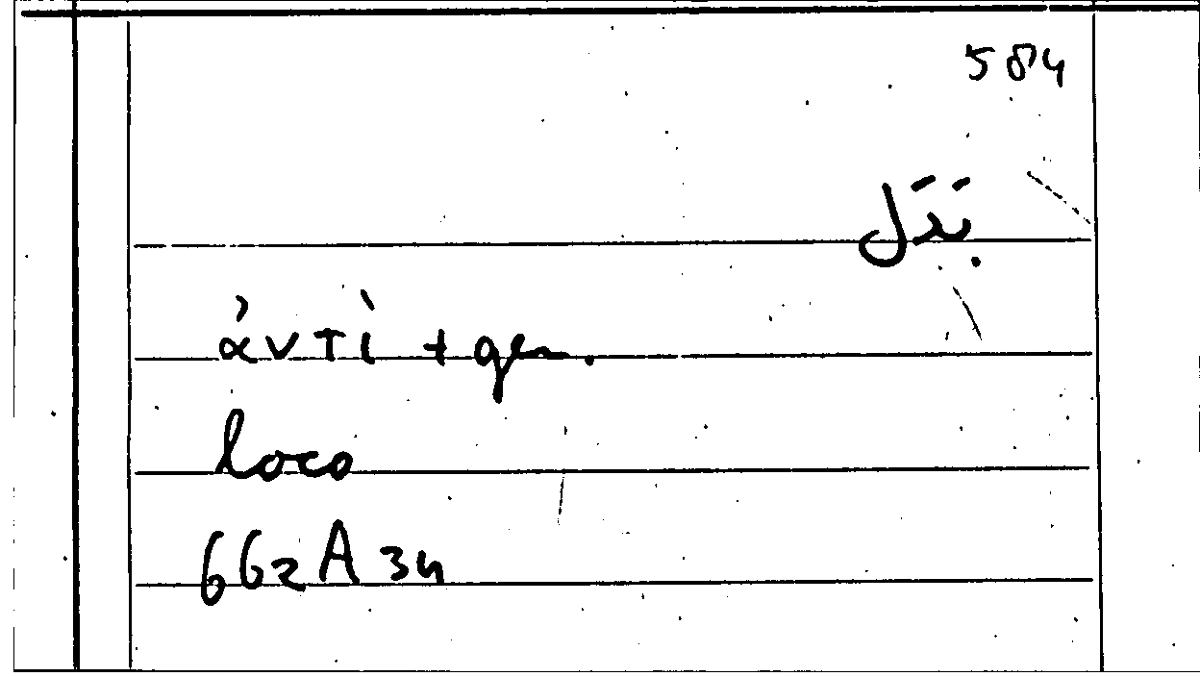 584
ἀντὶ + gen.
loco
662A34